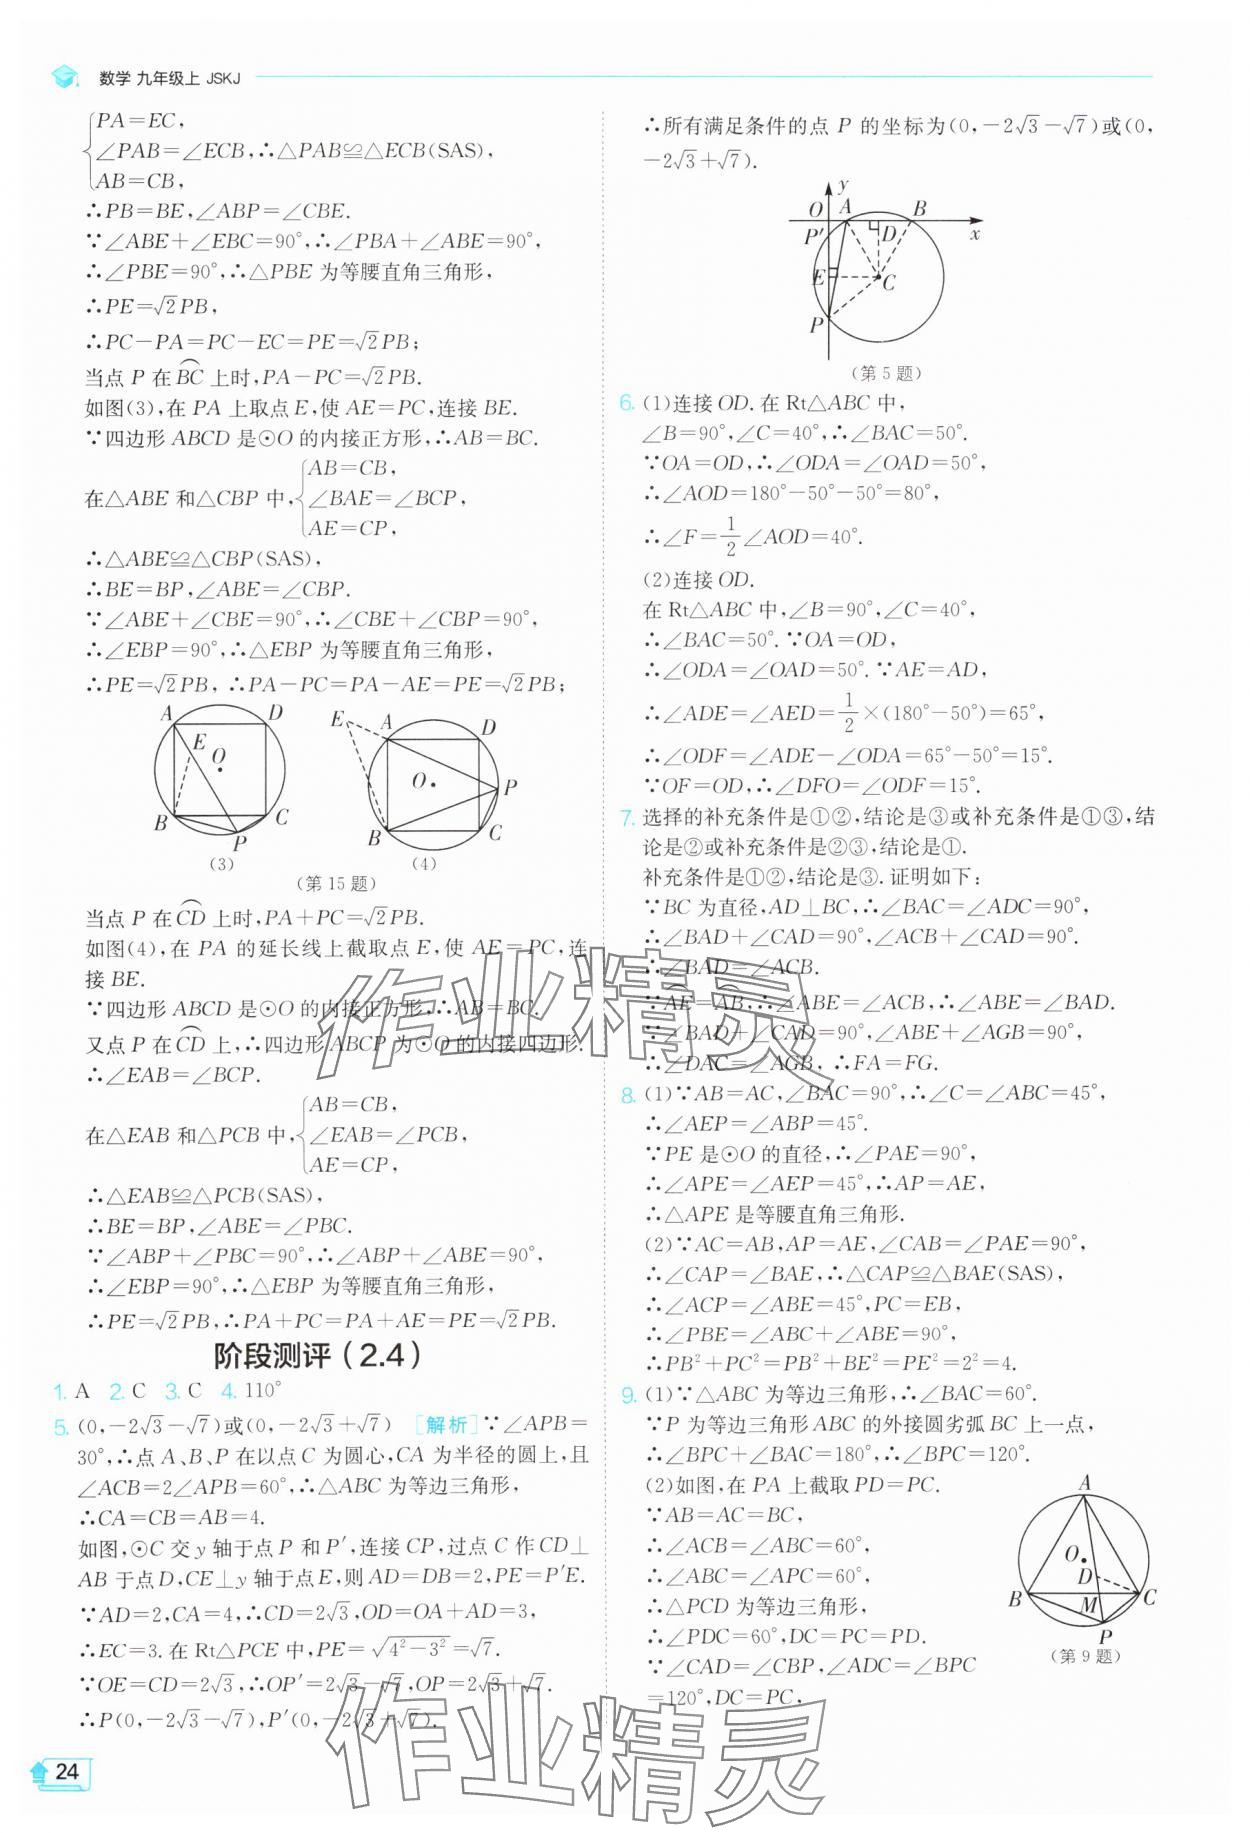 数学 九年级上 JSKJ
PA=EC,
∠PAB=∠ECB,∴△PAB≌△ECB(SAS),
AB=CB,
∴PB=BE,∠ABP=∠CBE.
∵∠ABE+∠EBC=90°,∴∠PBA+∠ABE=90°,
∴∠PBE=90°,∴△PBE 为等腰直角三角形,
∴PE=√2PB,
∴PC-PA=PC-EC=PE=√2PB;
当点 P 在 BC 上时,PA-PC=√2PB.
如图(3),在 PA 上取点 E,使 AE=PC,连接 BE.
∵四边形 ABCD 是⊙O 的内接正方形,∴AB=BC.
AB=CB,
在△ABE 和△CBP 中,∠BAE=∠BCP,
AE=CP,
∴△ABE≌△CBP(SAS),
∴BE=BP,∠ABE=∠CBP.
∵∠ABE+∠CBE=90°,∴∠CBE+∠CBP=90°,
∴∠EBP=90°,∴△EBP 为等腰直角三角形,
∴PE=√2PB,∴PA-PC=PA-AE=PE=√2PB;
A D E O B C P
E A D O P B C
(3) (4)
(第 15 题)
当点 P 在 CD 上时,PA+PC=√2PB.
如图(4),在 PA 的延长线上截取点 E,使 AE=PC,连
接 BE.
∵四边形 ABCD 是⊙O 的内接正方形,∴AB=BC.
又点 P 在 CD 上,∴四边形 ABCP 为⊙O 的内接四边形.
∴∠EAB=∠BCP.
AB=CB,
在△EAB 和△PCB 中,∠EAB=∠PCB,
AE=CP,
∴△EAB≌△PCB(SAS),
∴BE=BP,∠ABE=∠PBC.
∵∠ABP+∠PBC=90°,∴∠ABP+∠ABE=90°,
∴∠EBP=90°,∴△EBP 为等腰直角三角形,
∴PE=√2PB,∴PA+PC=PA+AE=PE=√2PB.
阶段测评(2.4)
1. A 2. C 3. C 4. 110°
5. (0,-2√3-√7)或(0,-2√3+√7) [解析]∵∠APB=
30°,∴点 A、B、P 在以点 C 为圆心,CA 为半径的圆上,且
∠ACB=2∠APB=60°,∴△ABC 为等边三角形,
∴CA=CB=AB=4.
如图,⊙C 交 y 轴于点 P 和 P′,连接 CP,过点 C 作 CD⊥
AB 于点 D,CE⊥y 轴于点 E,则 AD=DB=2,PE=P′E.
∵AD=2,CA=4,∴CD=2√3,OD=OA+AD=3,
∴EC=3.在 Rt△PCE 中,PE=√4²-3²=√7.
∵OE=CD=2√3,∴OP′=2√3-√7,OP=2√3+√7.
∴P(0,-2√3-√7),P′(0,-2√3+√7).
∴所有满足条件的点 P 的坐标为(0,-2√3-√7)或(0,
-2√3+√7).
y
O A B
P′ D x
E C
P
(第 5 题)
6. (1)连接 OD.在 Rt△ABC 中,
∠B=90°,∠C=40°,∴∠BAC=50°.
∵OA=OD,∴∠ODA=∠OAD=50°,
∴∠AOD=180°-50°-50°=80°,
∴∠F=1/2∠AOD=40°.
(2)连接 OD.
在 Rt△ABC 中,∠B=90°,∠C=40°,
∴∠BAC=50°.∵OA=OD,
∴∠ODA=∠OAD=50°.∵AE=AD,
∴∠ADE=∠AED=1/2×(180°-50°)=65°,
∴∠ODF=∠ADE-∠ODA=65°-50°=15°.
∵OF=OD,∴∠DFO=∠ODF=15°.
7. 选择的补充条件是①②,结论是③或补充条件是①③,结
论是②或补充条件是②③,结论是①.
补充条件是①②,结论是③.证明如下:
∵BC 为直径,AD⊥BC,∴∠BAC=∠ADC=90°,
∴∠BAD+∠CAD=90°,∠ACB+∠CAD=90°.
∴∠BAD=∠ACB.
∵AE=AB,∴∠ABE=∠ACB,∴∠ABE=∠BAD.
∵∠BAD+∠CAD=90°,∠ABE+∠AGB=90°,
∴∠DAC=∠AGB,∴FA=FG.
8. (1)∵AB=AC,∠BAC=90°,∴∠C=∠ABC=45°,
∴∠AEP=∠ABP=45°.
∵PE 是⊙O 的直径,∴∠PAE=90°,
∴∠APE=∠AEP=45°,∴AP=AE,
∴△APE 是等腰直角三角形.
(2)∵AC=AB,AP=AE,∠CAB=∠PAE=90°,
∴∠CAP=∠BAE,∴△CAP≌△BAE(SAS),
∴∠ACP=∠ABE=45°,PC=EB,
∴∠PBE=∠ABC+∠ABE=90°,
∴PB²+PC²=PB²+BE²=PE²=2²=4.
9. (1)∵△ABC 为等边三角形,∴∠BAC=60°.
∵P 为等边三角形 ABC 的外接圆劣弧 BC 上一点,
∴∠BPC+∠BAC=180°,∴∠BPC=120°.
(2)如图,在 PA 上截取 PD=PC.
∵AB=AC=BC,
∴∠ACB=∠ABC=60°,
∴∠ABC=∠APC=60°,
∴△PCD 为等边三角形,
∴∠PDC=60°,DC=PC=PD.
∵∠CAD=∠CBP,∠ADC=∠BPC
=120°,DC=PC,
A
O
D
B M C
P
(第 9 题)
24
作业精灵
作业精灵